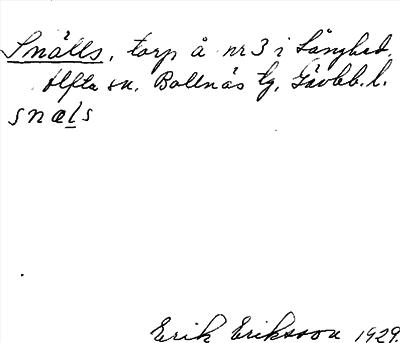 Snälls, torp å nr 3 i Långhed.
Alfta sn. Bollnäs tg, Gävleb. l.
snæls
Erik Eriksson 1929.